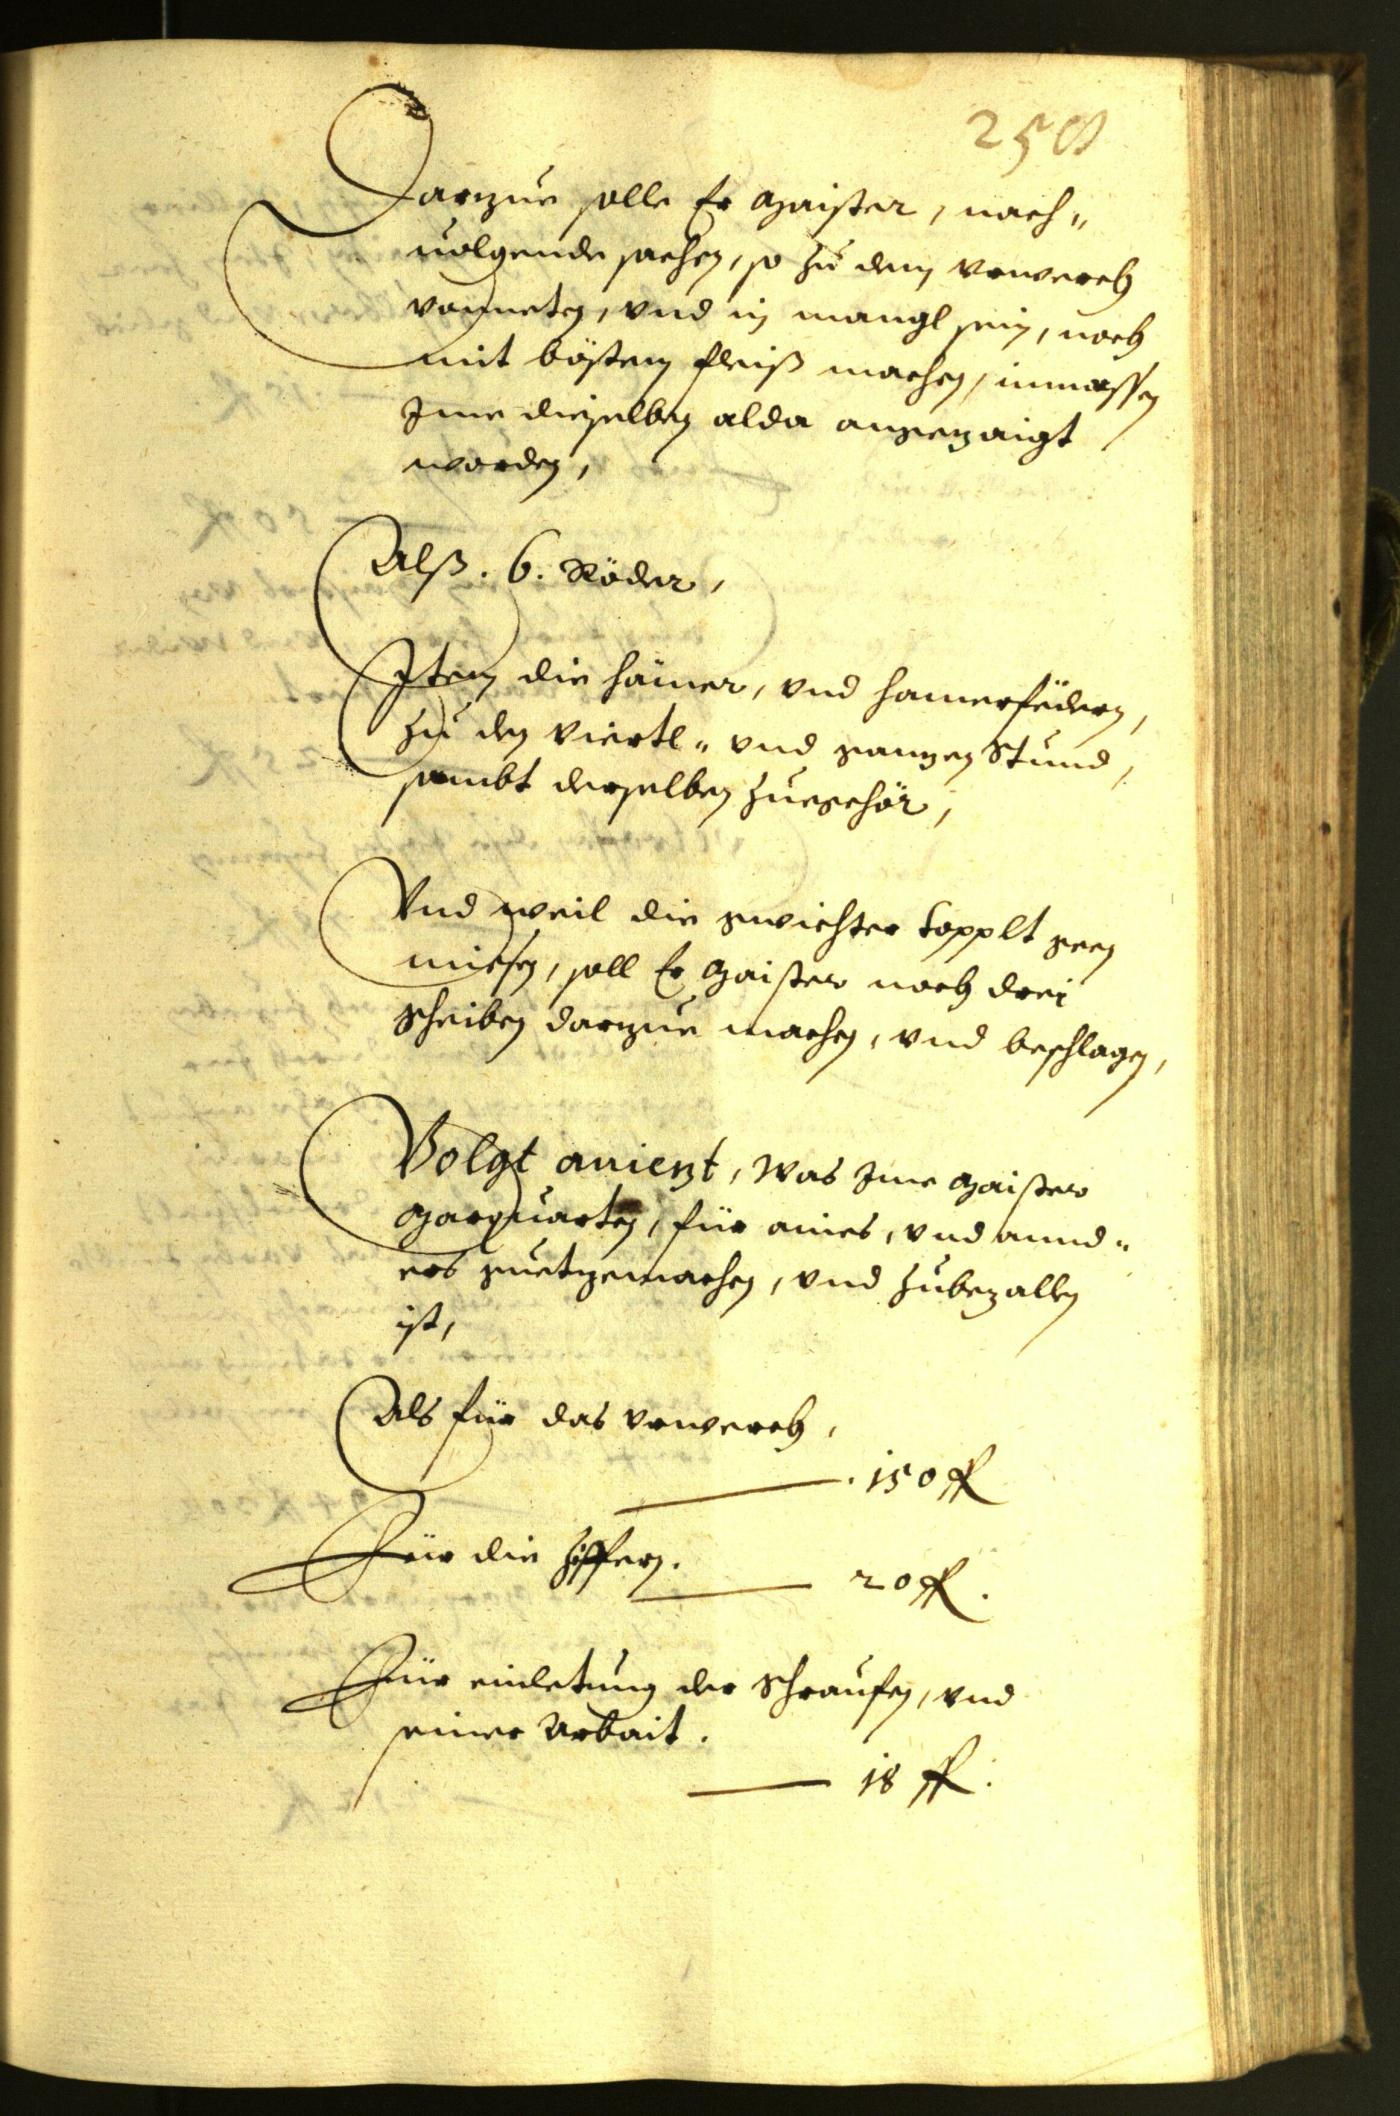 258
Darzue solle Er Maister, nach„
uolgende sachen, so zu dem Vrwerch
vonneten, vnd in mangl sein, noch
mit bӧstem fleiß machen, inmassen
Ime dieselben alda angezaigt
worden,
Alß. 6. Rӧder,
Item die hämer, vnd hamerfedern,
zu den Viertl„ vnd ganzen Stund,
sambt derselben zuegehӧr,
Vnd weil die gwichter topplt geen
miesen, soll Er Maister noch drei
scheiben darzue machen, vnd beschlagen,
Volgt aniezt, was Ime Maister
Marquarten, für aines, vnd annd„
ers guetzemachen, vnd zubezallen
ist,
Als für das Vrwerch,
150 fl
Für die Ziffern.
20 fl.
Für einletung der Schraufen, vnd
seiner Arbait.
18 fl.